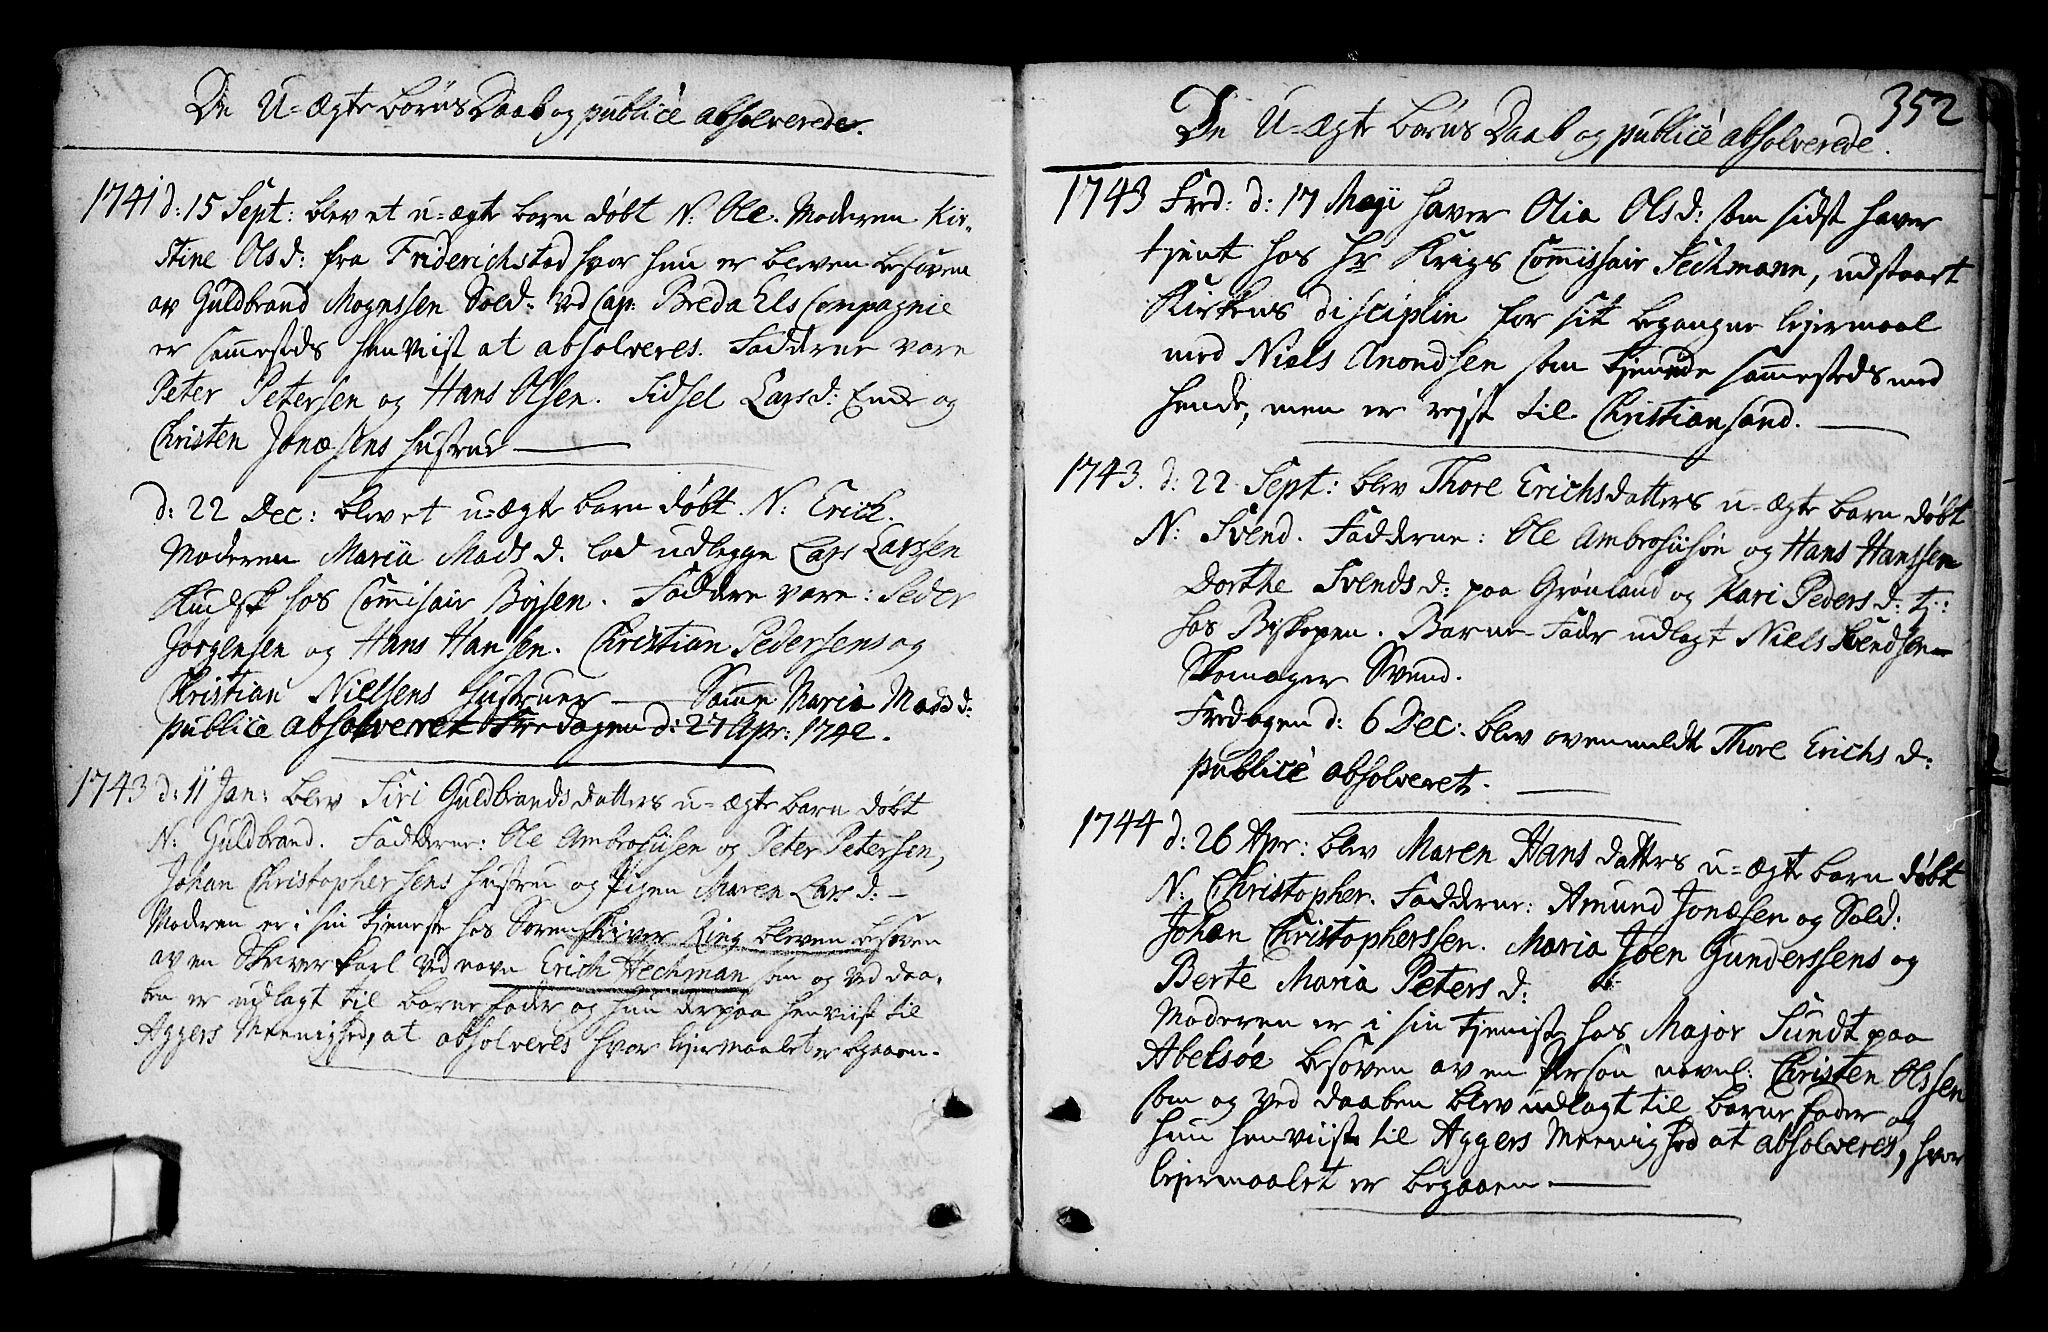 De U=ægte børns Daab og publicè absolverede.
1741 d: 15 Sept: blev et u=ægte barn døbt N: Ole. Moderen Kir-
stine Olsd: fra Friderichstad hvor hun er bleven besoven
av Guldbrand Mognssen Sold: ved Cap: Breda Els Compagnie
er sammesteds henviist at absolveres. Fadderne vare
Peter Petersen og Hans Olsen. Sidsel Larsd: Enke og
Christen Jonæsens hustrue
d: 22 Dec: blev et u=ægte barn døbt. N: Erich.
Moderen Maria Madsd. lod udlegge Lars Larssen
Kudsk hos Commisair Bøjsen. Faddre vare: Peder
Jørgensen og Hans Hansen. Christian Pedersens og
Christian Nielsens hustruer Samme Maria Madsd:
publice absolveret Fredagen d: 27 Apr: 1742.
1743 d: 11 Jan: blev Siri Guldbrandsdatters u=ægte barn døbt
N: Guldbrand. Fadderne: Ole Ambrosiisen og Peter Petersen,
Johan Christophersens hustru og Pigen Maren Larsd: –
Modren er i sin tjeneste hos Sorenskriver Ring bleven besoven
av en Skriverkarl ved navn Erich Hechman som og ved daa-
ben er udlagt til barnefader og hun derpaa henviist til
Aggers Meenighed, at absolveres hvor lejermaalet er begaaen.
352
De U=ægte børns Daab og publicè absolverede.
1743 Fred: d: 17 Maji haver Olia Olsd: som sidst haver
tjent hos Hr Krigs Commissair Sechmann, udstaaet
Kirkens disciplin for sit begangne lejermaal
med Niels Anondsen som tjennede sammesteds med
hende, men er rejst til Christiansand.
1743. d: 22 Sept: blev Thore Erichsdatters u=ægte barn døbt
N: Svend. Fadderne: Ole Ambrosiisøn og Hans Hanssen
Dorthe Svendsd: paa Grønland og Kari Pedersd: tj:
hos Biskopen. Barne-Fadr udlagt Niels Svendsen
Skomager Svend.
Fredagen d: 6 Dec: blev ovenmeldte Thore Erichsd:
publicè absolveret.
1744 d: 26 Apr: blev Maren Hansdatters u=ægte barn døbt
N: Christopher. Fadderne: Amund Jonæsen og Sold:
Johan Christopherssen. Maria Joen Gunderssens og
Berte Maria Petersd:
Moderen er i sin tjeniste hos Major Sundt paa
Abelsøe besoven av en Person navnl: Christen Olssen
som og ved daaben blev udlagt til barnefader og
hun henviist til Aggers Meenighed at absolveres, hvor
lejermaalet er begaaen